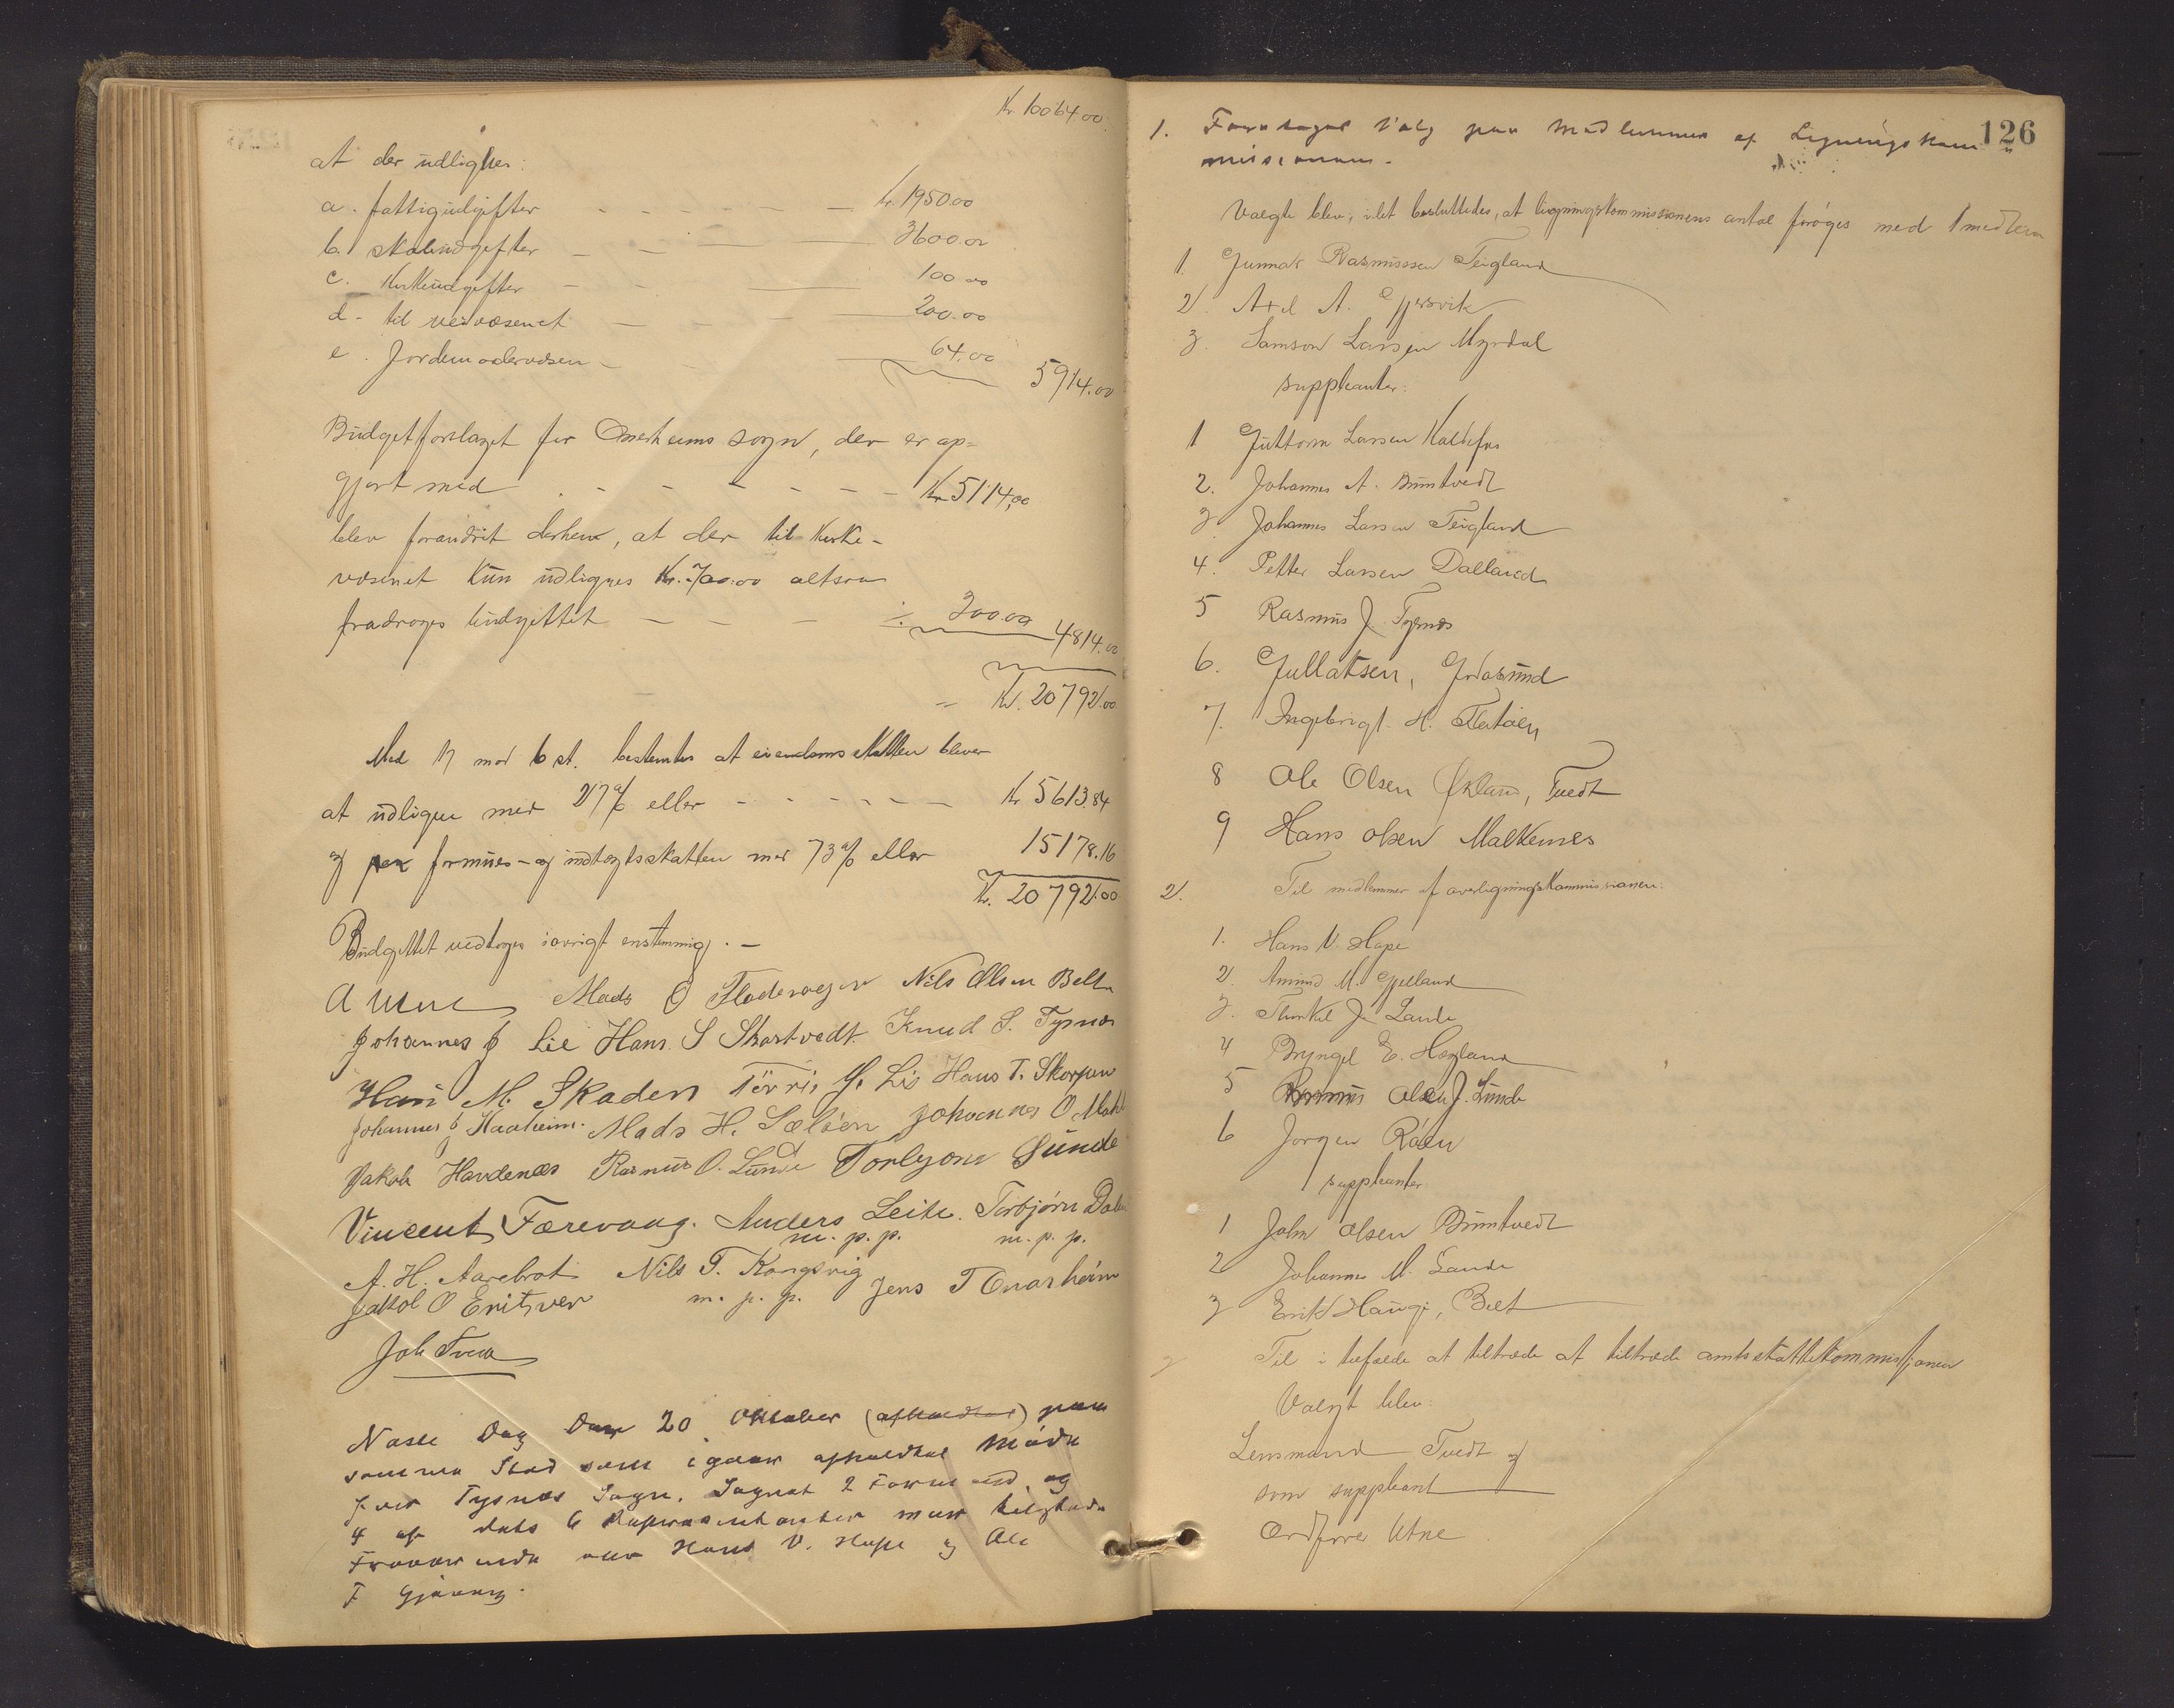 Kr. 10064.00.
at der udlignes:
a. fattigudgifter - - - - Kr. 1950.00
b. skoleudgifter - - 3600.00
c. Kirkeudgifter - - 100.00
d. til veivæsenet - - - 200.00
e. Jordemodervæsen - - 64.00
5914.00
Budgetforslaget for Onarheims sogn, der er op-
gjort med - - - - - - Kr 5114,00
blev forandrit derhen, at der til Kirke-
væsenet kun udlignes Kr. 700.00 altsaa
fradroges budgettet - - - ÷ 300.00 4814.00
Kr. 20792.00
Med 17 mod 6 st. bestemtes at eiendomsskatten bliver
at udligne med 27% eller - - - - - - Kr. 5613.84
og paa formues- og indtægtsskatten med 73% eller 15178.16
Kr. 20792.00
Budgettet vedtoges iøvrigt enstemmig. -
A Utne Mads O Fladervagen Nils Olsen Belt
Johannes J Lie Hans S Skartvedt Knud S. Tysnes
Hans M. Skaden Tørris G. Lie Hans T. Skorpen
Johannes J Haaheim. Mads H. Sæløen Johannes O Malk
Jakob Hardenæs Rasmus O. Lunde Torbjørn Sunde
Vincent Færevaag. Anders Leite. Torbjørn Dale
m. p. p. m. p. p.
A. H. Aarebrot Nils T. Kongsvig
Jakob O Enitsver m. p. p. Jens T Onarheim
Joh Tvedt
Næste Dag Den 20 Oktober (afholdtes) paa
samme Sted som igaar afholdtes Møde
for Tysnæs Sogn. Sognets 2 Formænd og
4 af dets 6 Repræsentanter var tilstede
Fraværende var Hans V. Hope og Ole
F Gjøvaag.
126
1. Foretoges Valg paa Medlemmer af Ligningskom
missionen.
Valgte blev, idet besluttedes, at ligningskommissionens antal forøges med 1 medlem
1. Gunnar Rasmussen Teigland
2. Axel A. Gjersvik
3. Samson Larsen Myrdal
suppleanter:
1 Guttorm Larsen Kaldefos
2. Johannes A. Drimtvedt
3. Johannes Larsen Teigland
4. Petter Larsen Dalland
5 Rasmus J. Tysnes
6. Gullaksen, Godøsund
7. Ingebrigt H. Flatøen
8 Ole Olsen Økland, Tvedt
9 Hans Olsen Malkenes
2. Til medlemmer af overligningskommissionen:
1. Hans V. Hope
2. Amund M. Gjelland
3. Thorkel J. Lande
4 Bryngel E. Hegland
5 Rasmus Olsen J. Lunde
6 Jørgen Røen
suppleanter
1 John Olsen Drimtvedt
2 Johannes M. Lande
3 Erik Haugi, Belt
3 Til i tilfælde at tiltræde at tiltræde amtsskattekommissjonen
Valgt blev:
Lensmand Tvedt og
som suppleant
Ordfører Utne